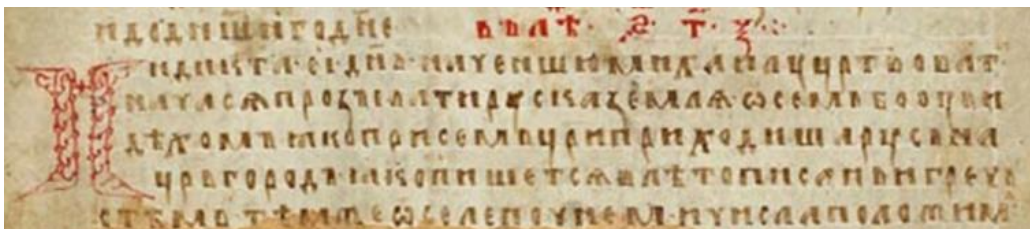 и до дн҃шнѧго дн҃е въ лѣ҃ · ҂ѕ҃ · т҃ · ѯ҃ ·:·
Индикта · еı҃ · дн҃ь · наченшю михаилу цр҃твоват
нача сѧ прозъıвати руска ꙁемлѧ ѡ семь бо оуви
дѣхомъ ꙗко при семь цр҃и приходиша русь на
цр҃ьгородъ ꙗко пишетсѧ в лѣтописаньи гречь
стѣмь тѣмже ѿселе почнем и числа положимъ